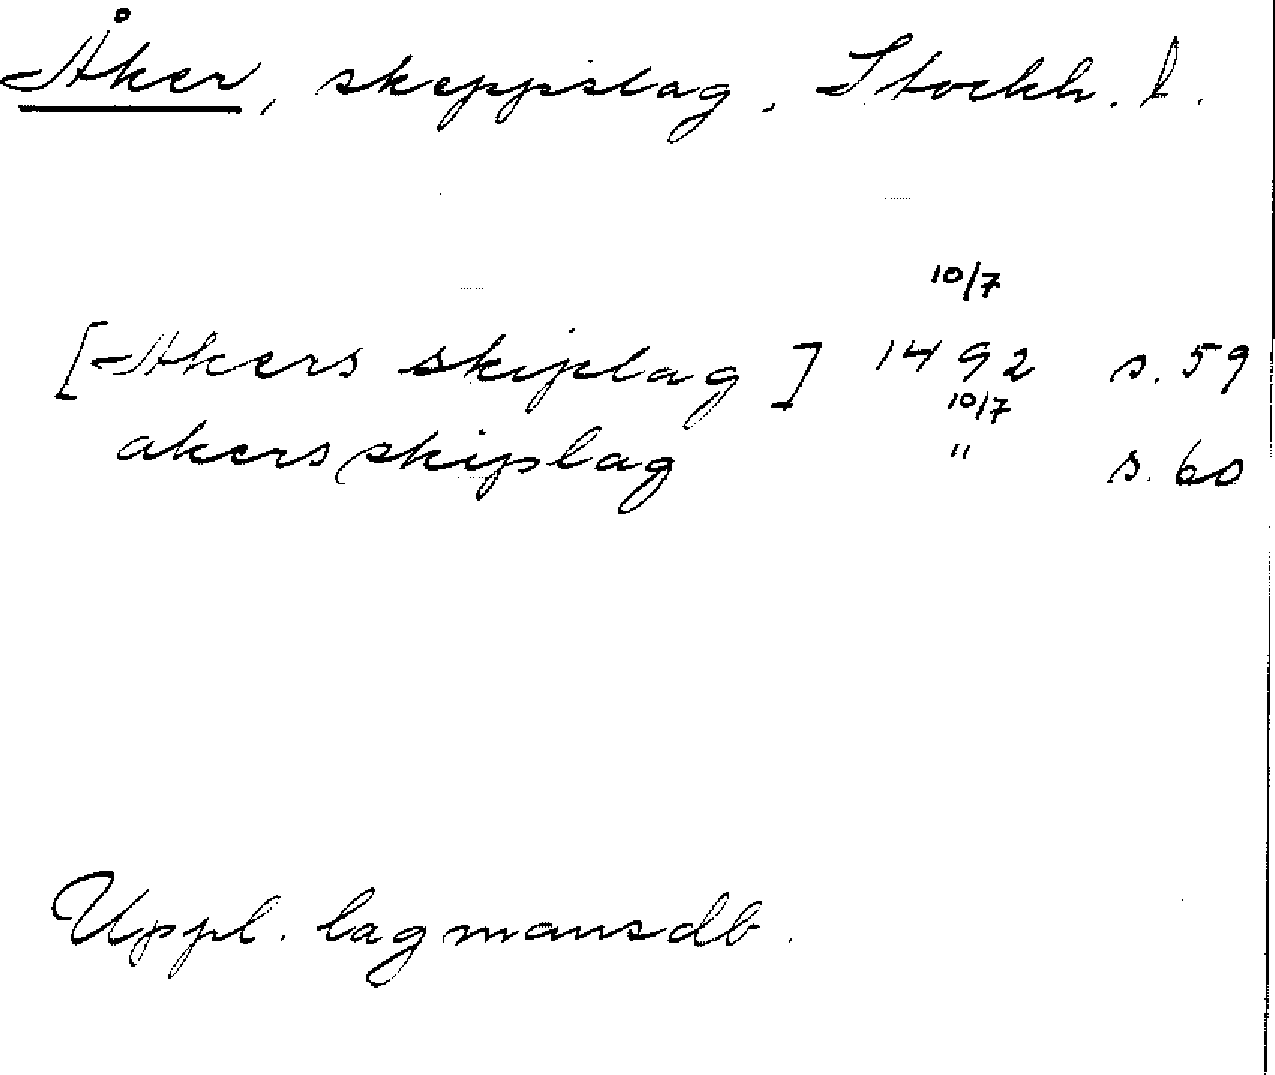 Åker, skeppslag, Stockh. l.
10/7
[Akers skiplag] 1492 s. 59
10/7
akers skiplag " s. 60
Uppl. lagmansdb.